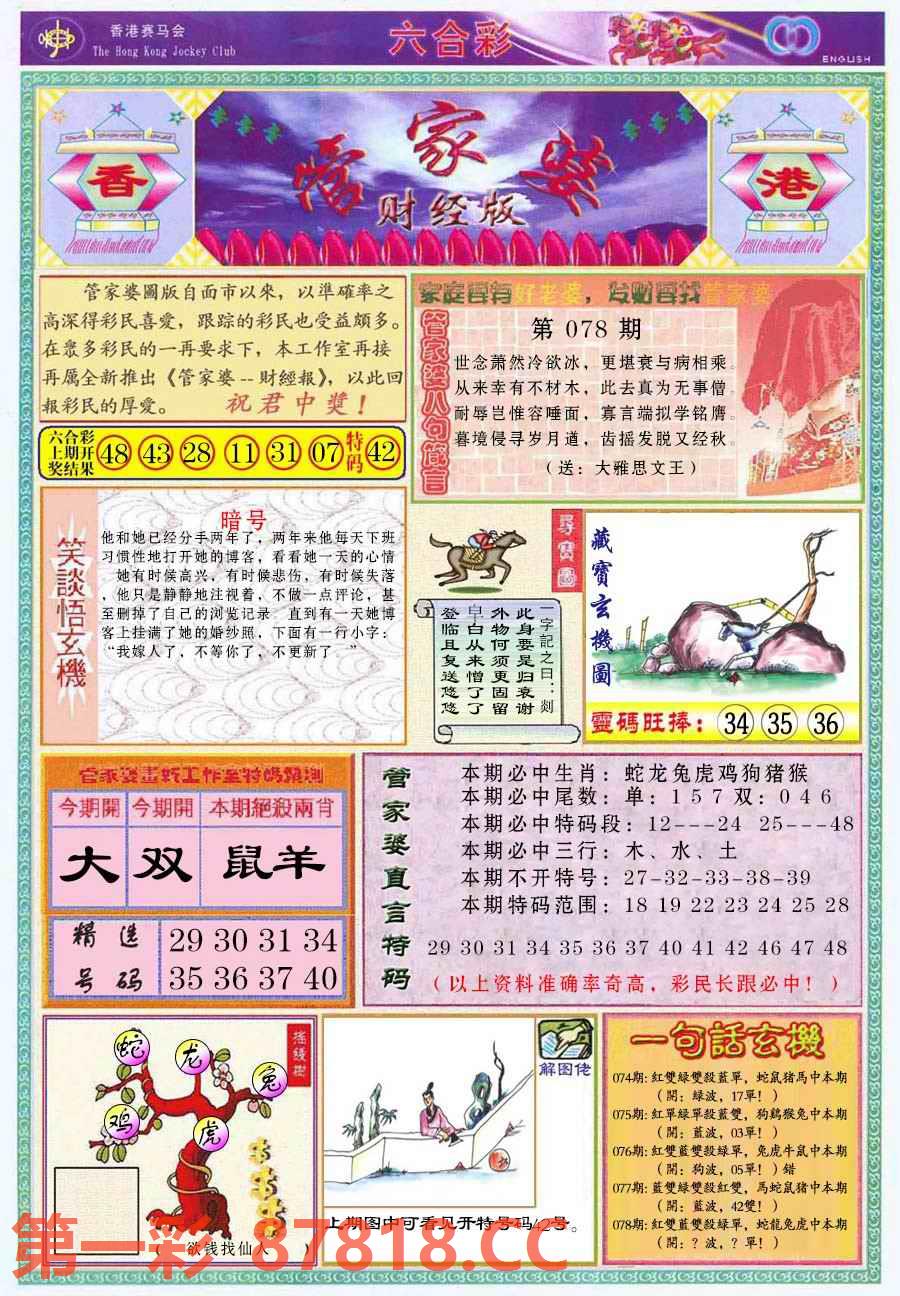 香港赛马会
The Hong Kong Jockey Club
六合彩
ENGLISH
香
管家婆
财经版
港
管家婆圖版自面市以來，以準確率之
高深得彩民喜愛，跟踪的彩民也受益頗多。
在眾多彩民的一再要求下，本工作室再接
再厲全新推出《管家婆--財經報》，以此回
報彩民的厚愛。 祝君中獎！
六合彩
上期开
奖结果
48 43 28 11 31 07 特码 42
家庭要有好老婆，发财要找管家婆
管家婆八句箴言
第 078 期
世念萧然冷欲冰，更堪衰与病相乘。
从来幸有不材木，此去真为无事僧。
耐辱岂惟容唾面，寡言端拟学铭膺。
暮境侵寻岁月道，齿摇发脱又经秋。
（送：大雅思文王）
笑談悟玄機
暗号
他和她已经分手两年了，两年来他每天下班
习惯性地打开她的博客，看看她一天的心情
她有时候高兴，有时候悲伤，有时候失落
，他只是静静地注视着，不做一点评论，甚
至删掉了自己的浏览记录 直到有一天她博
客上挂满了她的婚纱照，下面有一行小字：
“我嫁人了，不等你了，不更新了 ”
尋寶圖
一字記之曰：剡
此身要是归衰谢
外物何须更固留
皁白从来憎了了
登临且复送悠悠
藏寶玄機圖
靈碼旺捧：34 35 36
管家婆畫転工作室特碼預測
今期開 今期開 本期絕殺兩肖
大 双 鼠羊
精选
号码
29 30 31 34
35 36 37 40
管家婆直言特码
本期必中生肖：蛇龙兔虎鸡狗猪猴
本期必中尾数：单：1 5 7 双：0 4 6
本期必中特码段：12---24 25---48
本期必中三行：木、水、土
本期不开特号：27-32-33-38-39
本期特码范围：18 19 22 23 24 25 28
29 30 31 34 35 36 37 40 41 42 46 47 48
（以上资料准确率奇高，彩民长跟必中！）
摇錢樹
蛇
龙
兔
鸡
虎
（ 欲钱找仙人 ）
解图佬
上期图中可看见开特号码42号。
一句話玄機
074期：紅雙绿雙殺藍單，蛇鼠猪馬中本期
（開：绿波，17單！）
075期：紅單绿單殺藍雙，狗鷄猴兔中本期
（開：藍波，03單！）
076期：紅雙藍雙殺绿單，兔虎牛鼠中本期
（開：狗波，05單！）错
077期：藍雙绿雙殺紅雙，馬蛇鼠猪中本期
（開：藍波，42雙！）
078期：紅雙藍雙殺绿單，蛇龍兔虎中本期
（開：？波，？單！）
第一彩 87818.CC